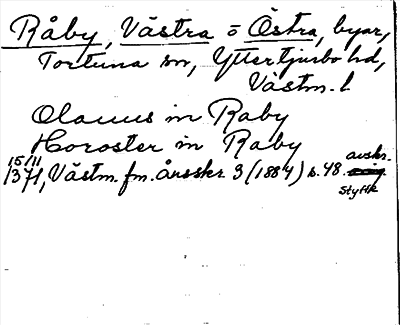 Råby, Västra o Östra, byar,
Tortuna sn, Yttertjurbo hd,
Västm. l
Olauus in Raby
Horoster in Raby
15/11 1371, Västm. fm. årsskr 3 (1884) s. 48. avskr.
Styffe